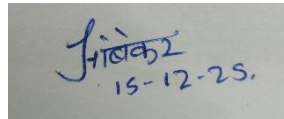 आंबेकर
15-12-25.